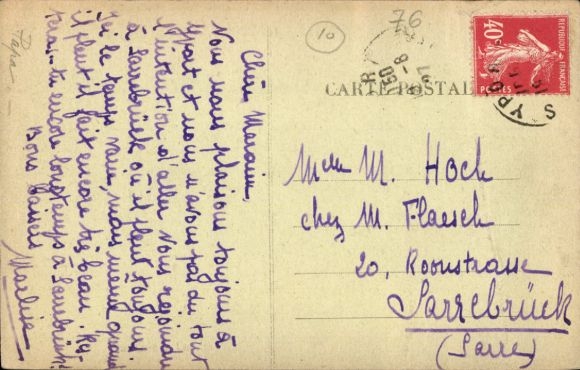 Papa
Chère Maman,
Nous nous plaisons toujours à
Yport et nous n'avons pas du tout
l'intention d'aller vous rejoindre
à Sarrebrück où il pleut toujours.
Ici le temps varie, mais même quand
il pleut il fait encore très beau.
tu encore longtemps à Sarrebrück?
Bons baisers
10
76
CARTE POSTALE
REPUBLIQUE FRANÇAISE
40c
POSTES
YPOR
Melle M. Hoch
chez M. Flaesch
20, Roonstrasse
Sarrebrück
(Sarre)